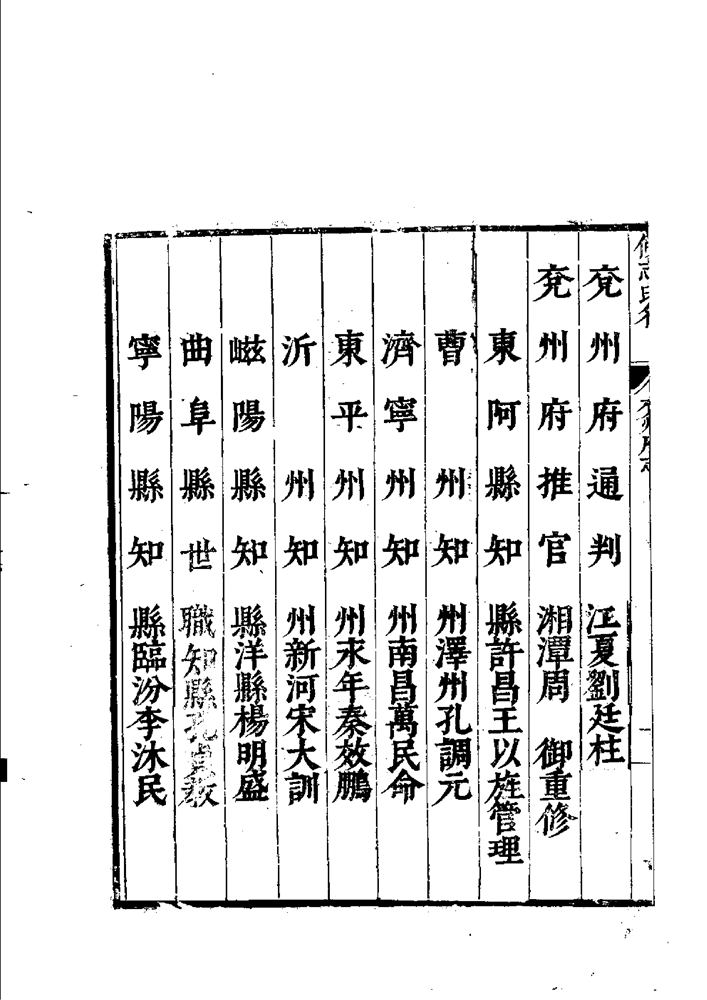 修志氏名
兗州府志
兗州府通判江夏劉廷柱
兗州府推官湘潭周 御重修
東阿縣知縣許昌王以旌管理
曹 州知州澤州孔調元
濟寧州知州南昌萬民命
東平州知州永年秦效鵬
沂 州知州新河宋大訓
嵫陽縣知縣洋縣楊明盛
曲阜縣世職知縣孔貞教
寧陽縣知縣臨汾李沐民